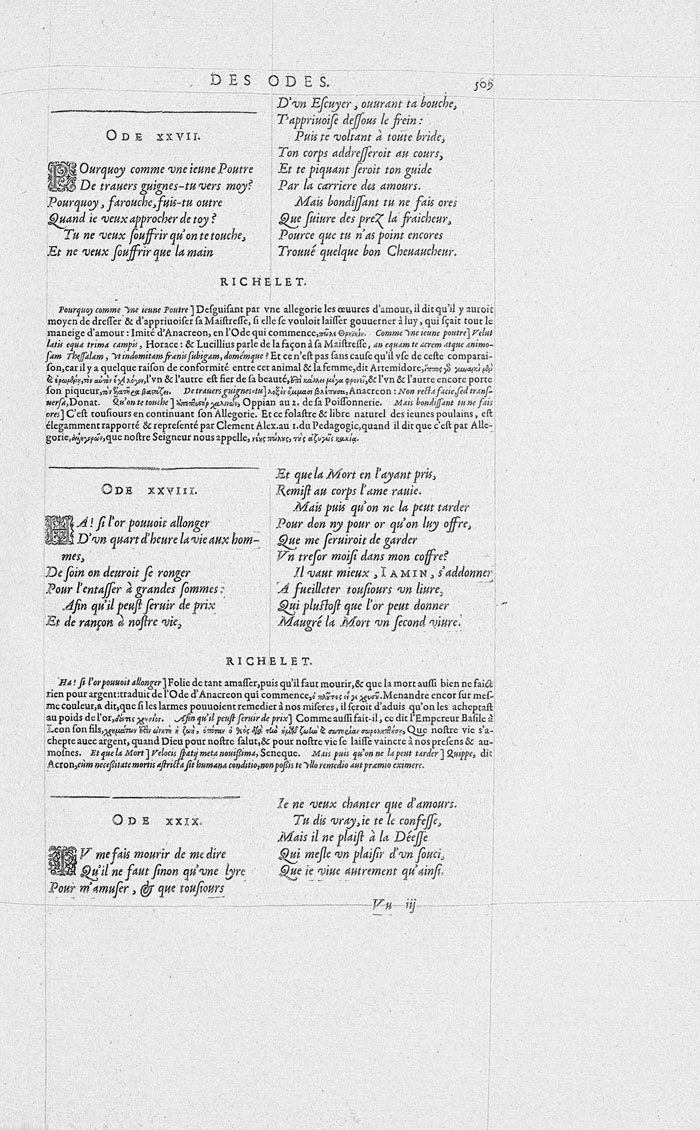 DES ODES.
509
ODE XXVII.
POurquoy comme vne ieune Poutre
De trauers guignes-tu vers moy?
Pourquoy, farouche, fuis-tu outre
Quand ie veux approcher de toy?
Tu ne veux souffrir qu'on te touche,
Et ne veux souffrir que la main
D'vn Escuyer, ouurant ta bouche,
T'appriuoise dessous le frein:
Puis te voltant à toute bride,
Ton corps addresseroit au cours,
Et te piquant seroit ton guide
Par la carriere des amours.
Mais bondissant tu ne fais ores
Que suiure des prez la fraicheur,
Pource que tu n'as point encores
Trouué quelque bon Cheuaucheur.
RICHELET.
Pourquoy comme vne ieune Poutre] Desguisant par vne allegorie les œuures d'amour, il dit qu'il y auroit
moyen de dresser & d'appriuoiser sa Maistresse, si elle se vouloit laisser gouuerner à luy, qui sçait tout le
maneige d'amour: Imité d'Anacreon, en l'Ode qui commence, πῶλε Θρηικίη. Comme vne ieune poutre] Velut
latis equa trima campis, Horace: & Lucillius parle de la façon à sa Maistresse, an equam te acrem atque animo-
sam Thessalam, vt indomitam franis subigam, domémque? Et ce n'est pas sans cause qu'il vse de ceste comparai-
son, car il y a quelque raison de conformité entre cet animal & la femme, dit Artemidore,
l'vn & l'autre est fier de sa beauté, & l'vn & l'autre encore porte
son piqueur, De trauers guignes-tu] Anacreon: Non recta facie, sed trans-
uersa, Donat. Qu'on te touche] Oppian au 2. de sa Poissonnerie. Mais bondissant tu ne fais
ores] C'est tousiours en continuant son Allegorie. Et ce folastre & libre naturel des ieunes poulains, est
élegamment rapporté & representé par Clement Alex. au 1. du Pedagogie, quand il dit que c'est par Alle-
gorie, que nostre Seigneur nous appelle,
ODE XXVIII.
HA! si l'or pouuoit allonger
D'vn quart d'heure la vie aux hom-
mes,
De soin on deuroit se ronger
Pour l'entasser à grandes sommes:
Afin qu'il peust seruir de prix
Et de rançon à nostre vie,
Et que la Mort en l'ayant pris,
Remist au corps l'ame rauie.
Mais puis qu'on ne la peut tarder
Pour don ny pour or qu'on luy offre,
Que me seruiroit de garder
Vn tresor moisi dans mon coffre?
Il vaut mieux, IAMIN, s'addonner
A fueilleter tousiours vn liure,
Qui plustost que l'or peut donner
Maugré la Mort vn second viure.
RICHELET.
Ha! si l'or pouuoit allonger] Folie de tant amasser, puis qu'il faut mourir, & que la mort aussi bien ne faict
rien pour argent: traduit de l'Ode d'Anacreon qui commence, ὁ πλοῦτος εἴ γε χρυσοῦ. Menandre encor sur mes-
me couleur, a dit, que si les larmes pouuoient remedier à nos miseres, il seroit d'aduis qu'on les acheptast
au poids de l'or, Afin qu'il peust seruir de prix] Comme aussi fait-il, ce dit l'Empereur Basile à
Leon son fils, Que nostre vie s'a-
chepte auec argent, quand Dieu pour nostre salut, & pour nostre vie se laisse vaincre à nos presens & au-
mosnes. Et que la Mort] Velocis spatij meta nouissima, Seneque. Mais puis qu'on ne la peut tarder] Quippe, dit
Acron, cùm necessitate mortis astricta sit humana conditio, non possis te vllo remedio aut præmio eximere.
ODE XXIX.
TV me fais mourir de me dire
Qu'il ne faut sinon qu'vne lyre
Pour m'amuser, & que tousiours
Ie ne veux chanter que d'amours.
Tu dis vray, ie te le confesse,
Mais il ne plaist à la Déesse
Qui mesle vn plaisir d'vn souci,
Que ie viue autrement qu'ainsi.
Vu iij